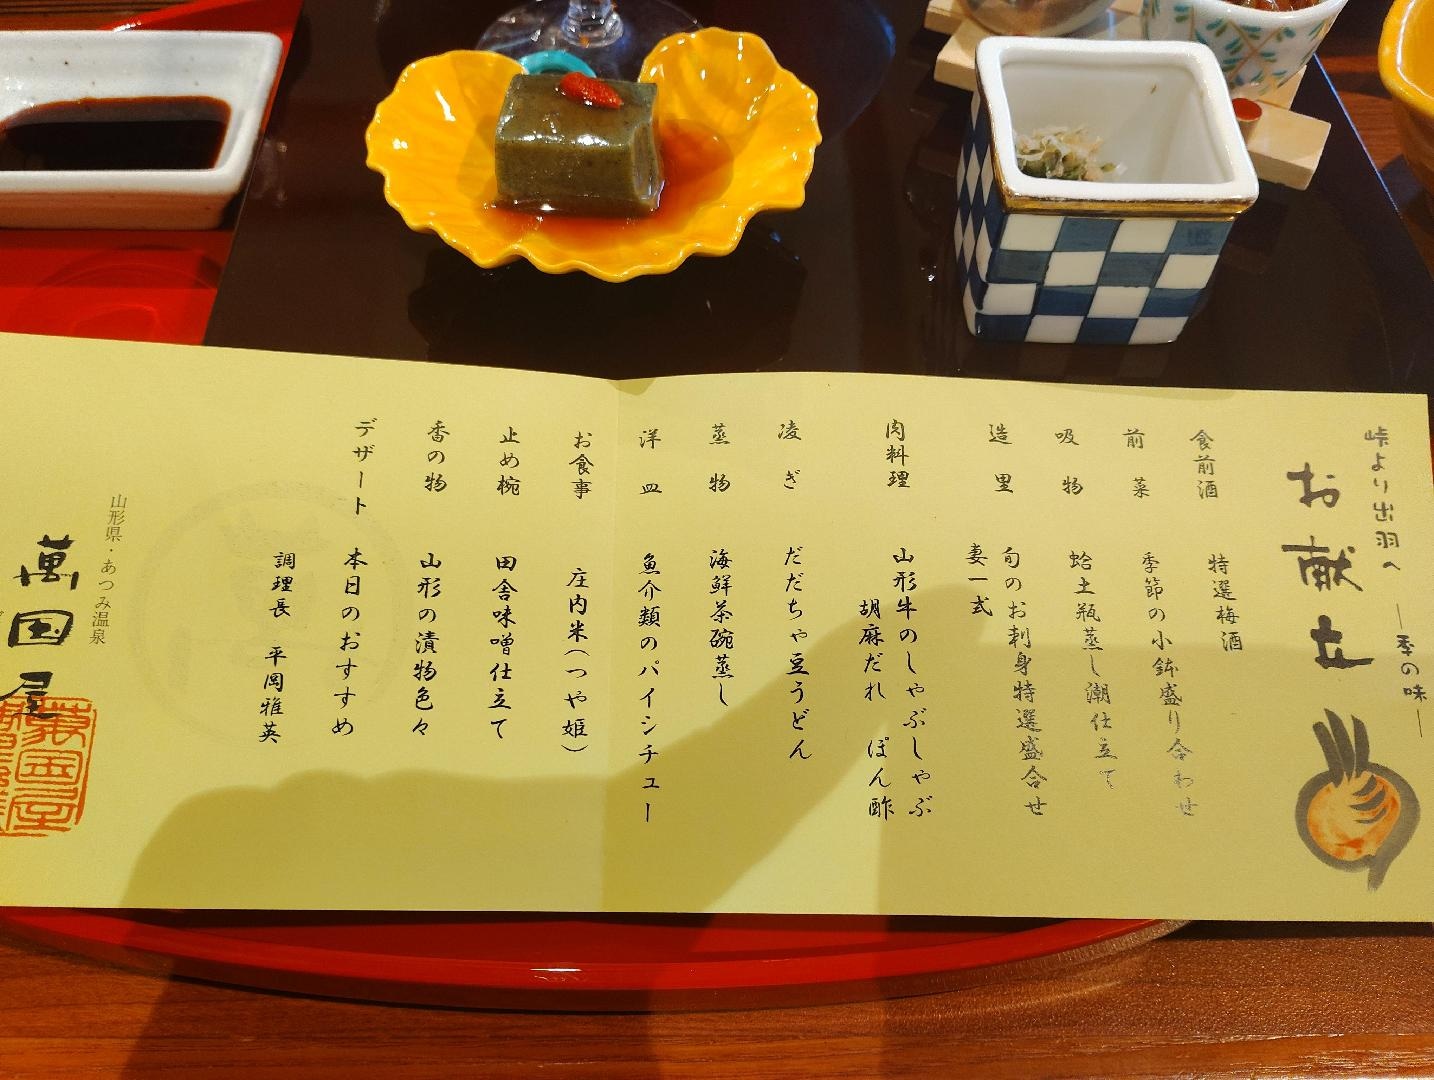 峠より出羽へ
―季の味―
お献立
食前酒
特選梅酒
前菜
季節の小鉢盛り合わせ
吸物
蛤土瓶蒸し潮仕立て
造里
旬のお刺身特選盛合せ
妻一式
肉料理
山形牛のしゃぶしゃぶ
胡麻だれ ぽん酢
凌ぎ
だだちゃ豆うどん
蒸物
海鮮茶碗蒸し
洋皿
魚介類のパイシチュー
お食事
庄内米(つや姫)
止め椀
田舎味噌仕立て
香の物
山形の漬物色々
デザート
本日のおすすめ
調理長 平岡雅英
山形県・あつみ温泉
萬国屋